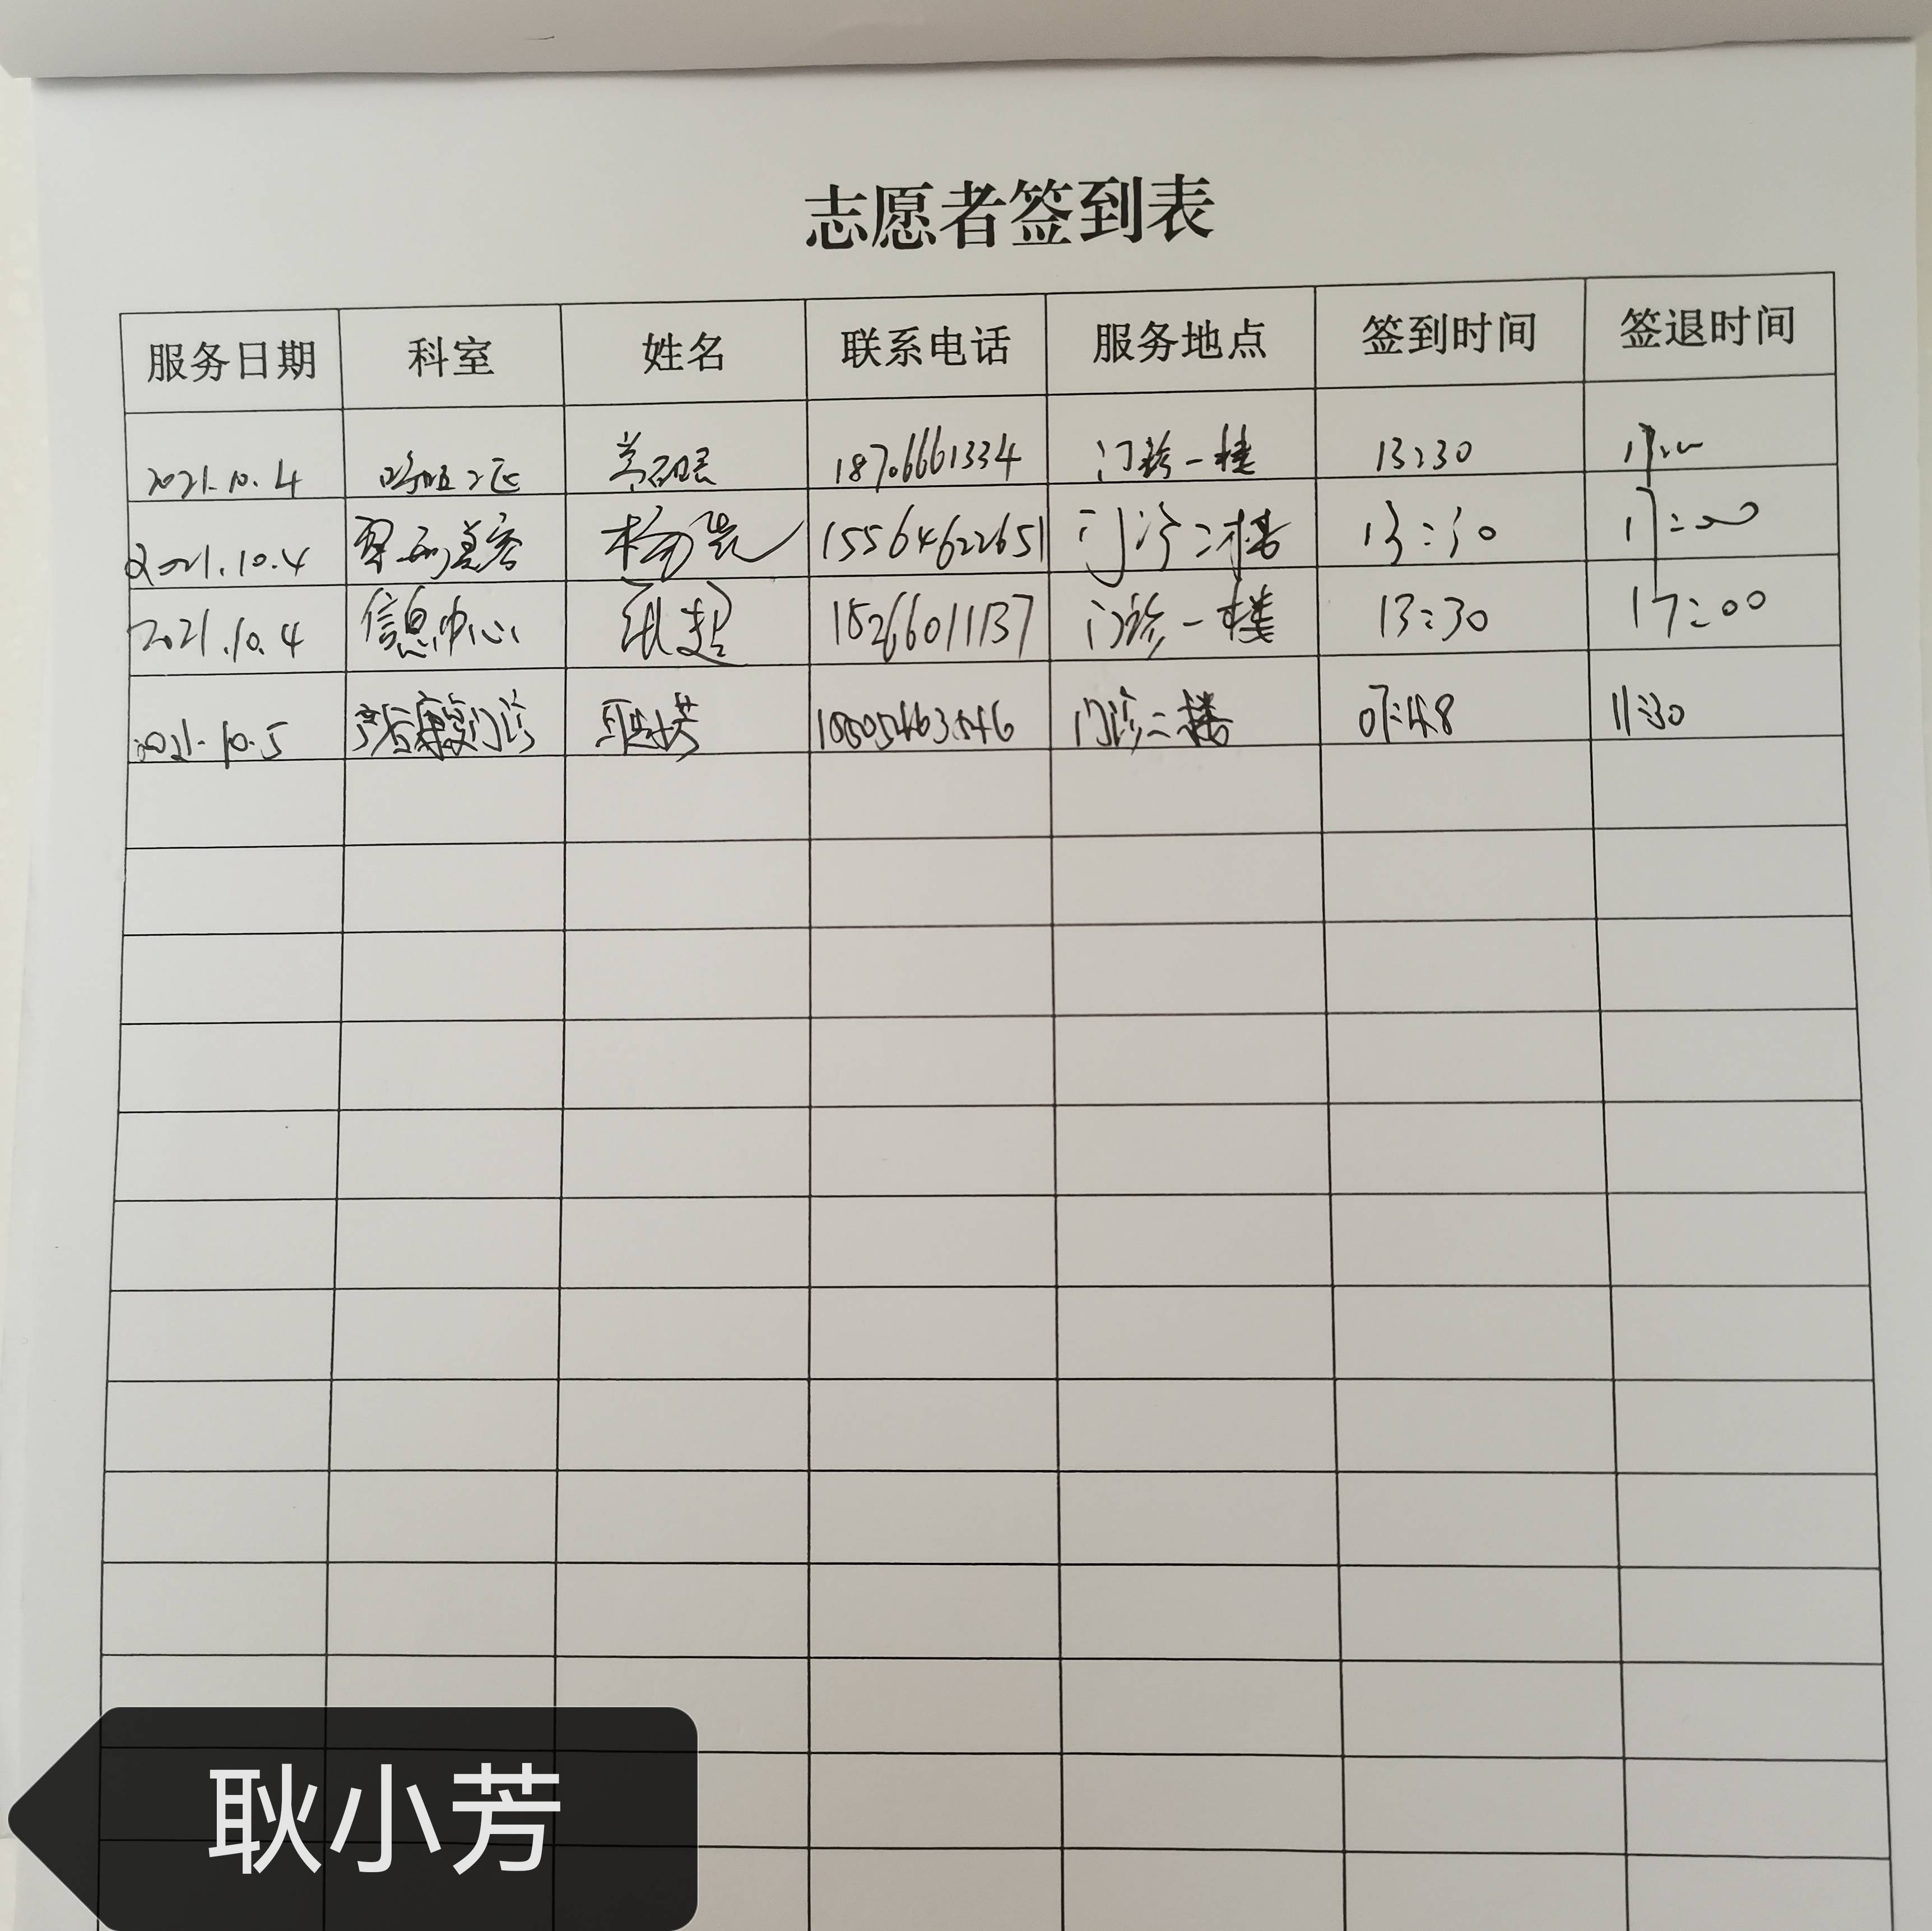 志愿者签到表
服务日期 科室 姓名 联系电话 服务地点 签到时间 签退时间
2021.10.4 呼吸二区 18706661334 门诊一楼 13:30 17:00
2021.10.4 杨 15564622651 门诊二楼 13:30 17:00
2021.10.4 信息中心 15266011137 门诊一楼 13:30 17:00
2021.10.5 产后康复门诊 耿小芳 门诊二楼 07:48 11:30
耿小芳